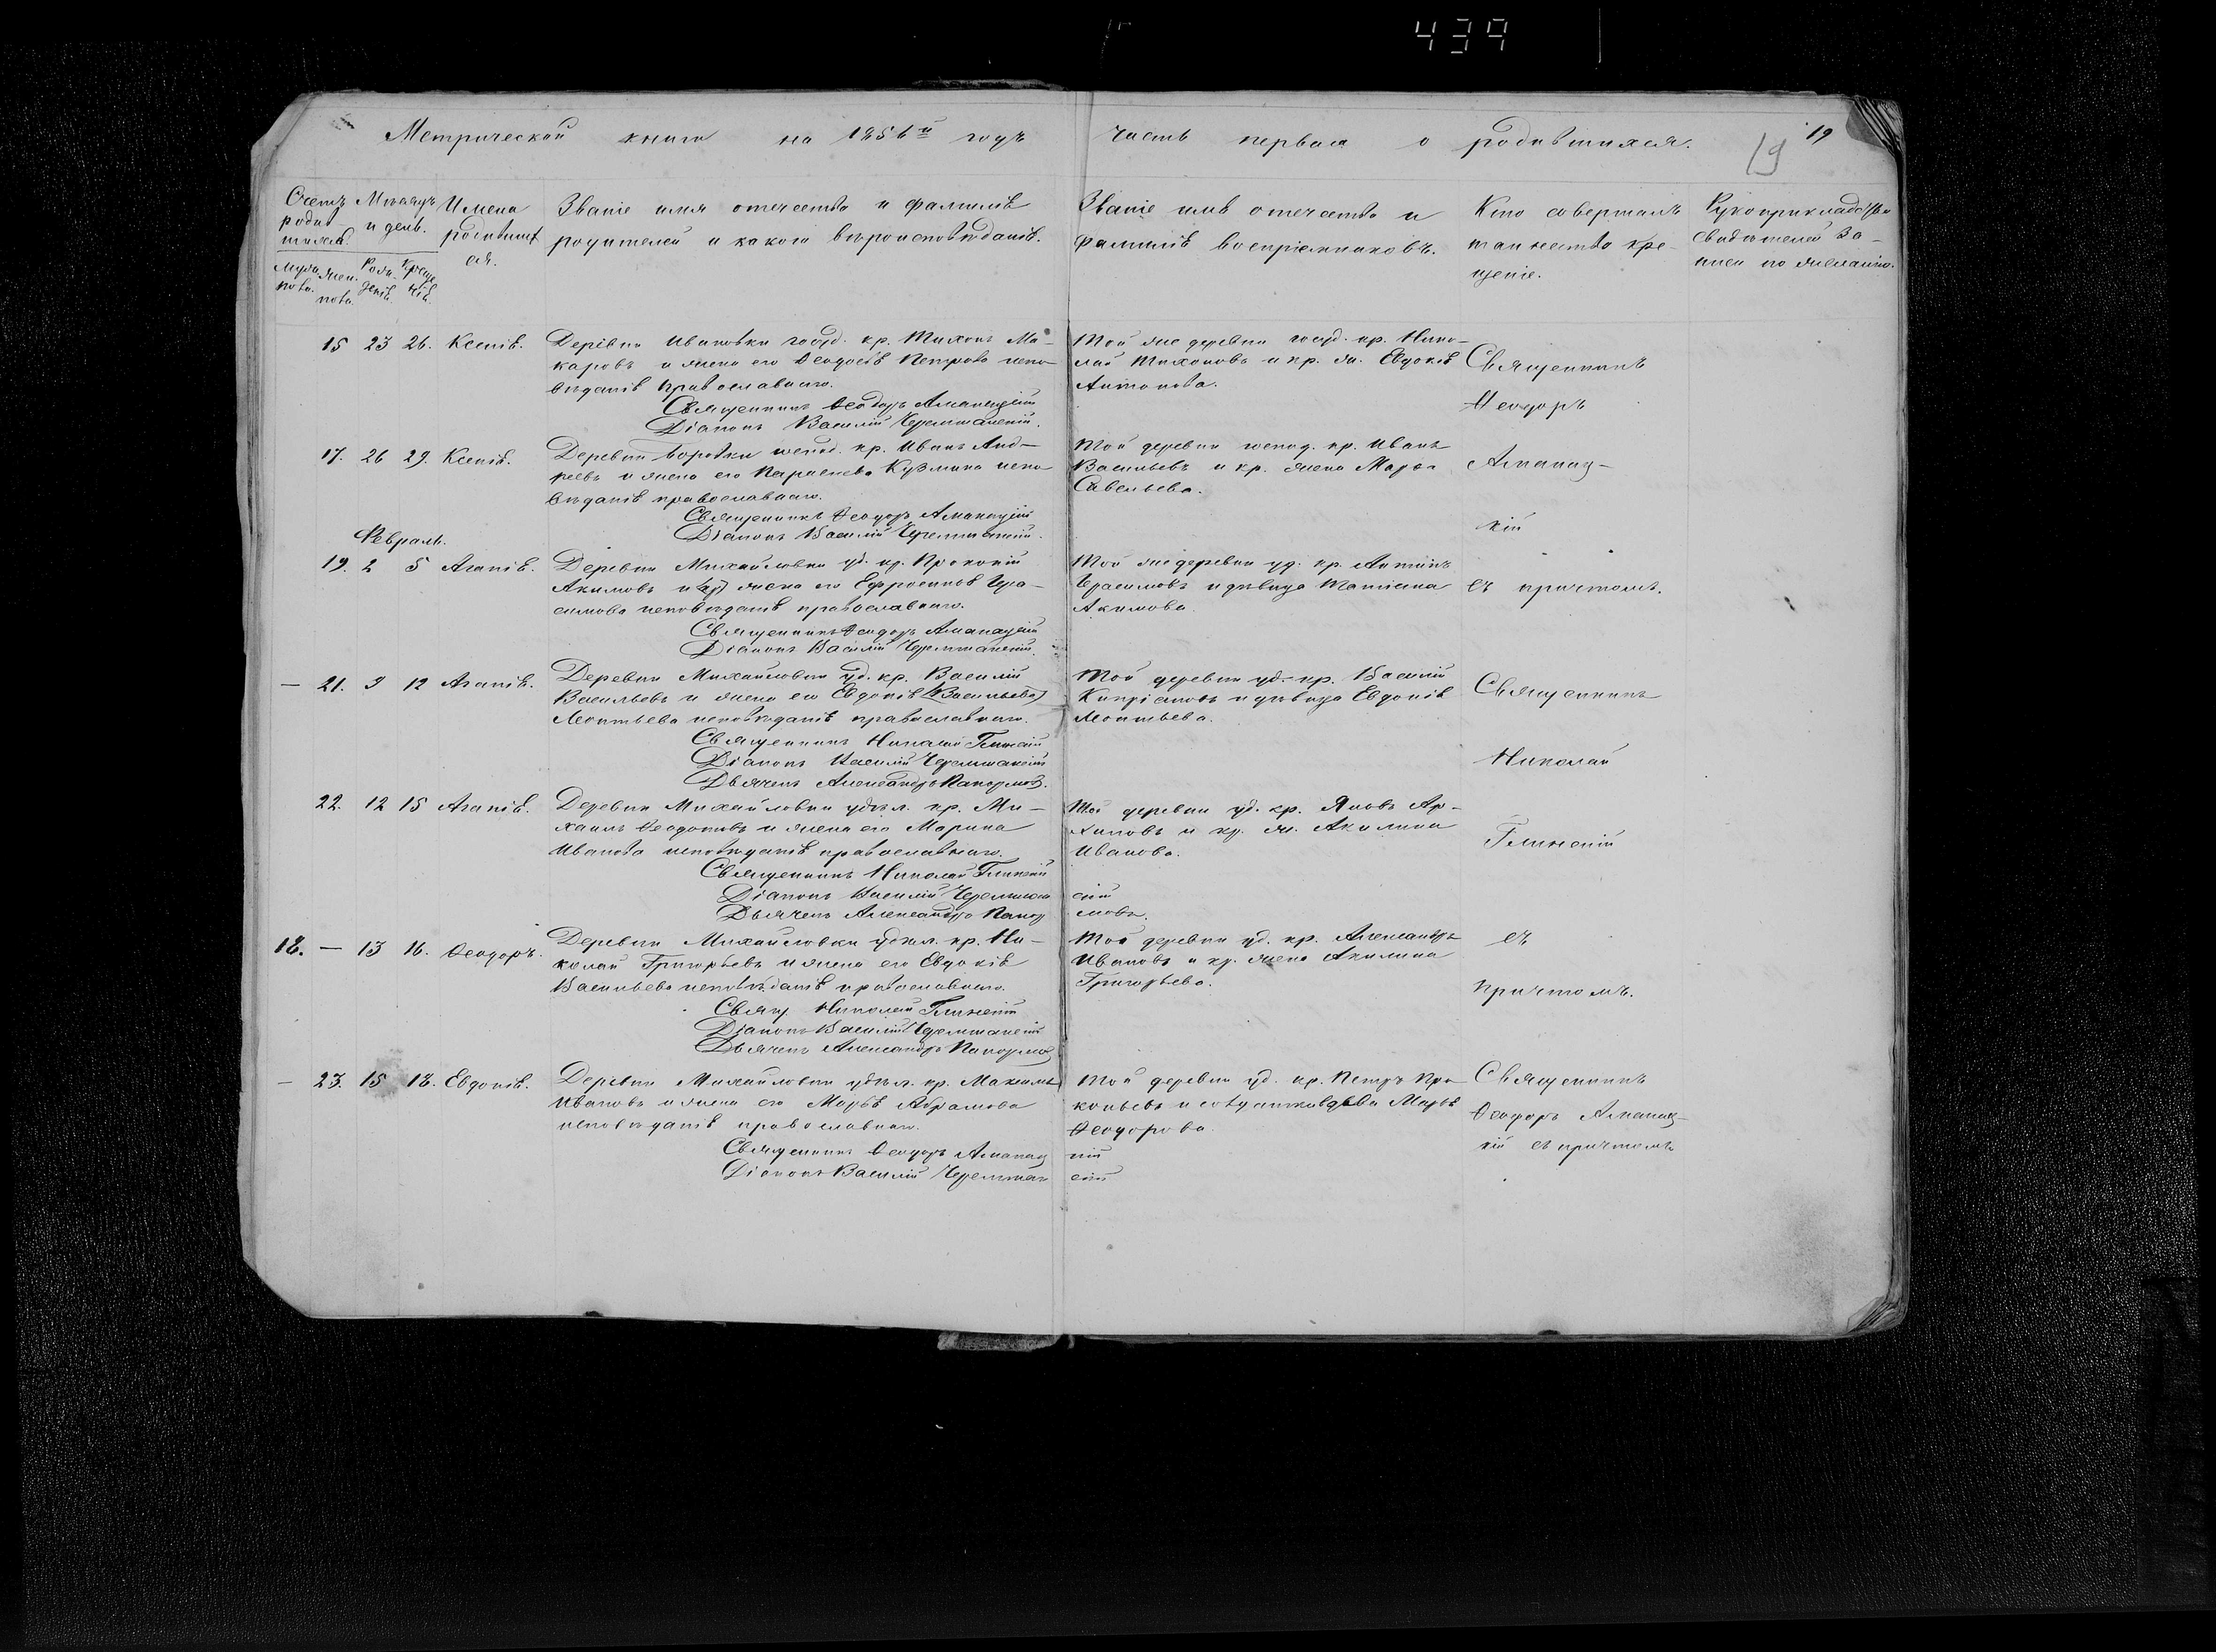 439
Метрической книги на 1856й годъ часть первая о родившихся.
19
19
Счетъ родившихся.
Мужеска пола. Женска пола.
Мѣсяцъ и день.
Рожденія. Крещенія.
Имена родившихся.
Званіе имя отчество и фамилія
родителей и какого вѣроисповѣданія.
Званіе имя отчество и
фамилія воспріемниковъ.
Кто совершалъ
таинство кре-
щенія.
Рукоприкладство
свидѣтелей за-
писи по желанію.
15 23 26. Ксенія.
Деревни Ивановки госуд. кр. Тихонъ Ма-
каровъ и жена его Ѳеодосія Петрова испо-
вѣданія православнаго.
Священникъ Ѳеодоръ Аманацкій
Діаконъ Василій Черемшанскій.
Той же деревни госуд. кр. Нико-
лай Тихоновъ и кр. ж. Евдокія
Антонова.
Священникъ
Ѳеодоръ
17. 26 29. Ксенія.
Деревни Боровки кр. Иванъ Анд-
реевъ и жена его Параскева Кузмина испо-
вѣданія православнаго.
Священникъ Ѳеодоръ Аманацкій
Діаконъ Василій Черемшанскій.
Той деревни кр. Иванъ
Васильевъ и кр. жена Марѳа
Савельева.
Аманац-
кій
Февраль.
19. 2 5 Агапія.
Деревни Михайловки уд. кр. Прокопій
Акимовъ и жена его Ефросинья Гера-
симова исповѣданія православнаго.
Священникъ Ѳеодоръ Аманацкій
Діаконъ Василій Черемшанскій.
Той же деревни уд. кр. Антипъ
Герасимовъ и дѣвица Татіана
Акимова.
съ причтомъ.
— 21. 9 12 Агапія.
Деревни Михайловки уд. кр. Василій
Васильевъ и жена его Евдокія (Васильева)
Леонтьева исповѣданія православнаго.
Священникъ Николай Глинскій
Діаконъ Василій Черемшанскій
Дьячекъ Александръ Панормовъ.
Той деревни уд. кр. Василій
Кипріановъ и дѣвица Евдокія
Леонтьева.
Священникъ
Николай
22. 12 15 Агапія.
Деревни Михайловки удѣл. кр. Ми-
хаилъ Ѳеодотовъ и жена его Марина
Иванова исповѣданія православнаго.
Священникъ Николай Глинскій
Діаконъ Василій Черемшанскій
Дьячекъ Александръ Панормовъ.
Той деревни уд. кр. Яковъ Ар-
хиповъ и кр. ж. Акилина
Иванова.
Глинскій
18. — 13 16. Ѳеодоръ.
Деревни Михайловки удѣл. кр. Ни-
колай Григорьевъ и жена его Евдокія
Васильева исповѣданія православнаго.
Свящ. Николай Глинскій
Діаконъ Василій Черемшанскій
Дьячекъ Александръ Панормовъ
Той деревни уд. кр. Александръ
Ивановъ и кр. жена Акилина
Григорьева.
съ
причтомъ.
— 23. 15 18. Евдокія.
Деревни Михайловки удѣл. кр. Максимъ
Ивановъ и жена его Марья Абрамова
исповѣданія православнаго.
Священникъ Ѳеодоръ Аманацкій
Діаконъ Василій Черемшанскій
Той деревни уд. кр. Петръ Про-
копьевъ и солдатка вдова Марья
Ѳеодорова.
Священникъ
Ѳеодоръ Аманац-
кій съ причтомъ